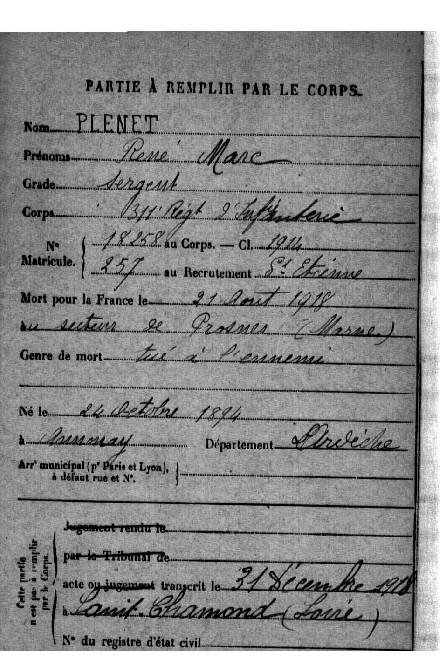 PARTIE À REMPLIR PAR LE CORPS.
Nom PLENET
Prénoms René Marc
Grade Sergent
Corps 311e Régt D'Infanterie
N° Matricule. { 18258 au Corps. — Cl. 1914
257 au Recrutement St Etienne
Mort pour la France le 21 Aout 1918
au secteur de Prosnes (Marne)
Genre de mort tué à l'ennemi
Né le 24 Octobre 1894
à Annonay Département L'Ardèche
Arrt municipal (pr Paris et Lyon), à défaut rue et N°.
Cette partie n'est pas à remplir par le Corps.
Jugement rendu le
par le Tribunal de
acte ou jugement transcrit le 31 Décembre 1918
à Saint Chamond (Loire)
N° du registre d'état civil